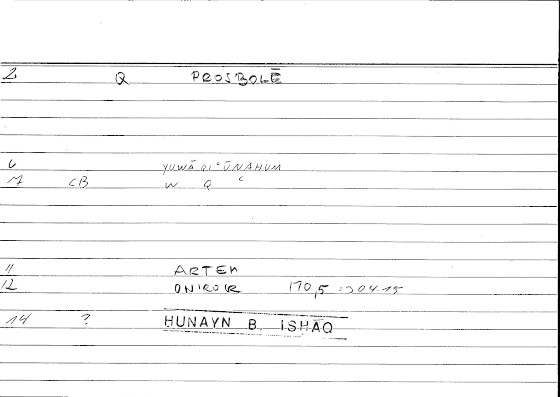 2 Q PROSBOLĒ
6 YUWĀQIʿŪNAHUM
7 CB W Q ʿ
11 ARTEM
12 ONIROKR 170,5 = 304 15
14 ? HUNAYN B. ISHĀQ